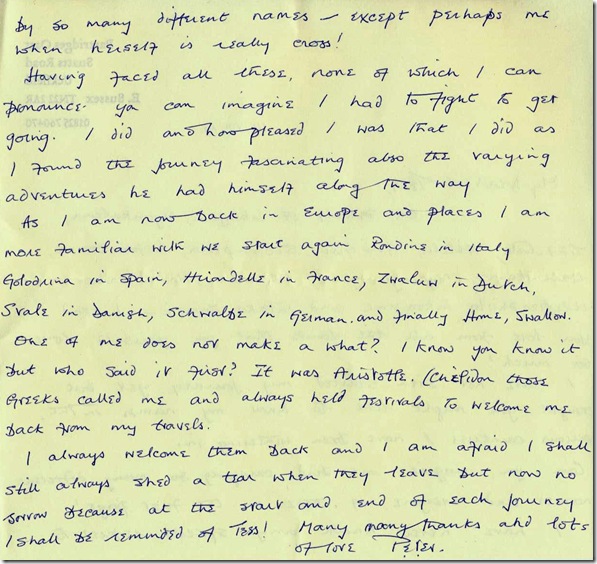 By so many different names – except perhaps me
when herself is really cross!
Having faced all these, none of which I can
pronounce ya can imagine I had to fight to get
going. I did and how pleased I was that I did as
I found the journey fascinating also the varying
adventures he had himself along the way
As I am now back in Europe and places I am
more familiar with we start again Rondine in Italy
Golodrina in Spain, Hirondelle in France, Zwaluw in Dutch,
Svale in Danish, Schwalbe in German and finally Home, Swallow.
One of me does not make a what? I know you know it
but who said it first? It was Aristotle. (Chelidon those
Greeks called me and always held festivals to welcome me
back from my travels.
I always welcome them back and I am afraid I shall
still always shed a tear when they leave but now no
sorrow because at the start and end of each journey
I shall be reminded of Tess! Many many thanks and lots
of love Peter.